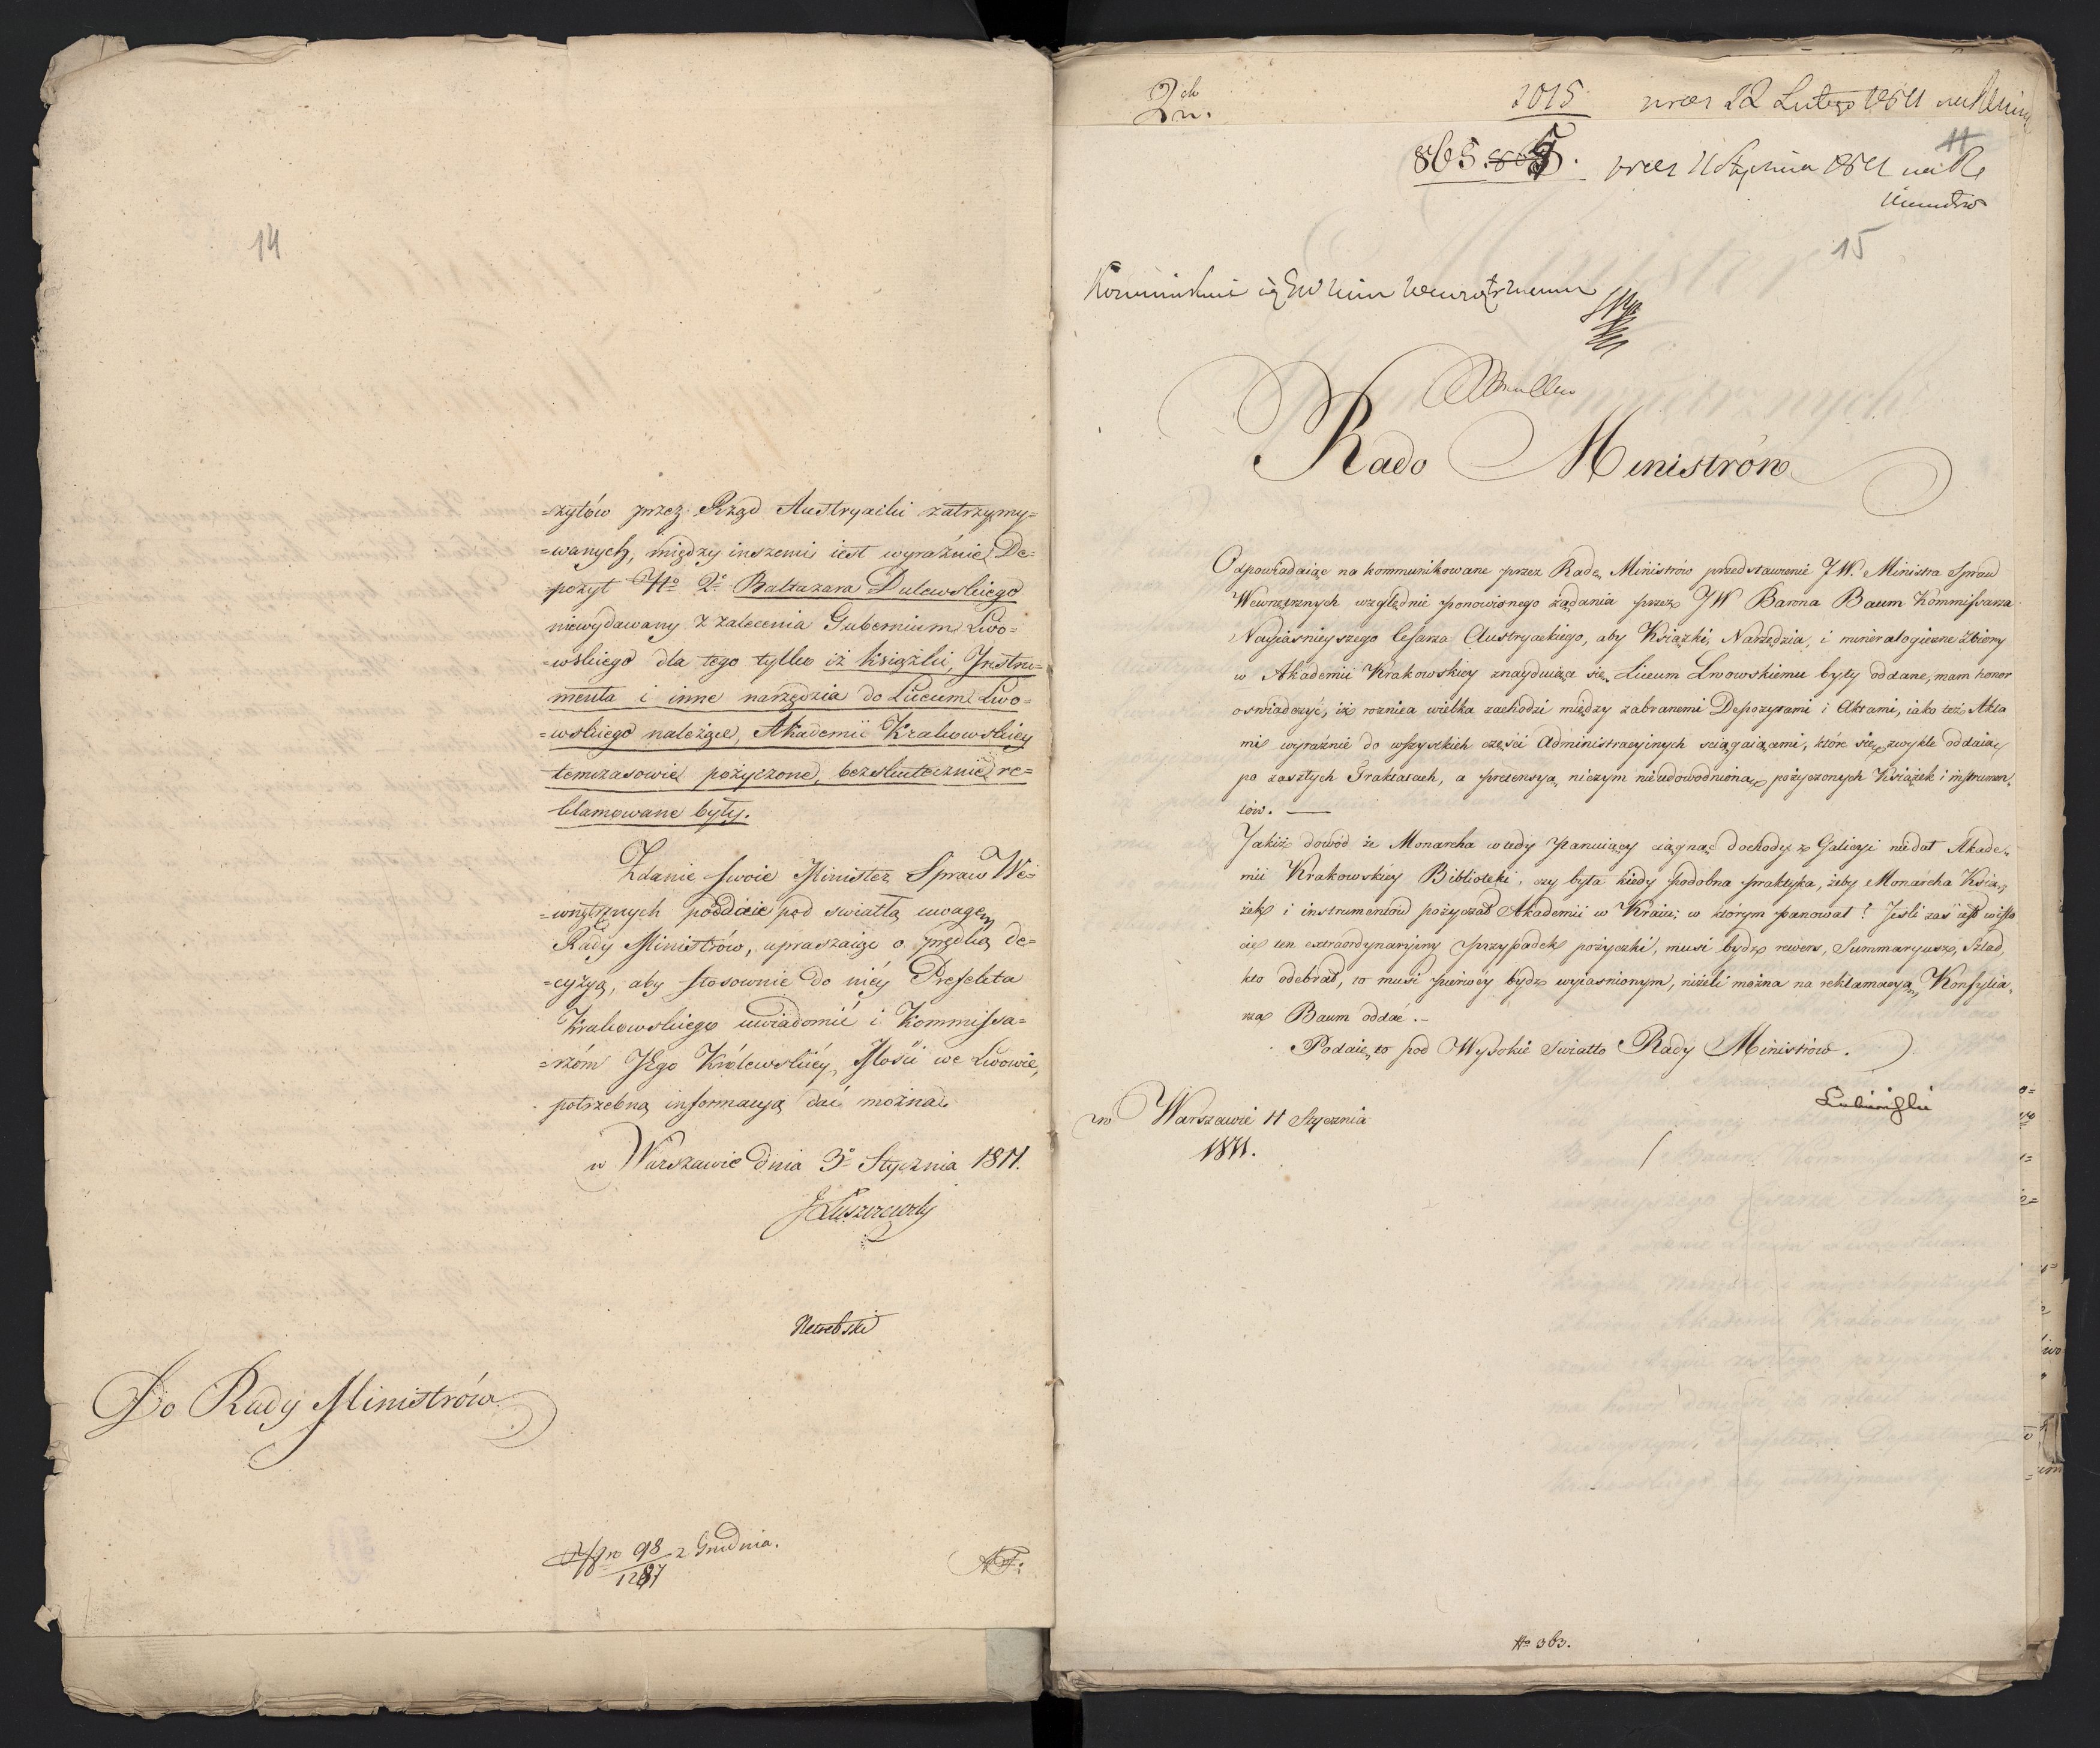 14
=zytów przez Rząd Austryacki zatrzymy=
=wanych, między inszemi iest wyraźnie De=
pozyt No 2o Baltazara Dulewskiego
niewydawany z zalecenia Gubernium Lwo=
=wskiego dla tego tylko iż książki, Instru=
menta i inne narzędzia do Liceum Lwo=
=wskiego należące, Akademii Krakowskiey
temczasowie pożyczone, bezskutecznie re=
klamowane były.
Zdanie swoie Minister Spraw We=
=wnętrznych poddaie pod swiatłą uwagę
Rady Ministrów, upraszaiąc o prędką de=
=cyzyą, aby stosownie do niéy Prefekta
Krakowskiego uwiadomić i Kommissa=
=rzóm JEgo Królewskiéy Mości we Lwowie,
potrzebną informacyą dać można.
w Warszawie dnia 3o Stycznia 1811.
JŁuszczewski
Do Rady Ministrów
Nro 98/1287 z Grudnia.
2015 22 Lutego
11
865
Ministrów
15
Rado Ministrów
Odpowiadaiąc na kommunikowane przez Radę Ministrów przedstawienie JW. Ministra Spraw
Wewnętrznych względnie ponowionego żądania przez JW Barona Baum Kommissarza
Nayiaśnieyszego Cesarza Austryackiego, aby Książki, Narzędzia, i mineralogiczne Zbiory
w Akademii Krakowskiey znayduiące się, Liceum Lwowskiemu były oddane, mam honor
oswiadczyć, iż roznica wielka zachodzi między zabranemi Depozytami i Aktami, iako też Akta
mi wyraźnie do wszystkich części Administracyinych sciągaiącemi, które się zwykle oddaią
po zaszłych Traktatach, a pretensyą niczym nieudowodnioną pożyczonych Książek i instrumen„
tów. —
Jakiż dowód że Monarcha wtedy Panuiący ciągnąc dochody z Galicyi niedał Akade„
mii Krakowskiey Biblioteki, czy była kiedy podobna praktyka, żeby Monarcha Ksią„
żek i instrumentów pożyczał Akademii w Kraiu, w którym panował! Jeśli zaś
ten extraordynaryiny przypadek pożyczki, musi bydź rewers, Summaryusz, Slad,
kto odebrał, to musi pierwéy bydź wyiasnionym, niżeli można na reklamacyą Konsylia„
rza Baum oddać.–
Podaię to pod Wysokie Swiatło Rady Ministrów.
Łubieński
w Warszawie 11 Stycznia
1811.
No 363.